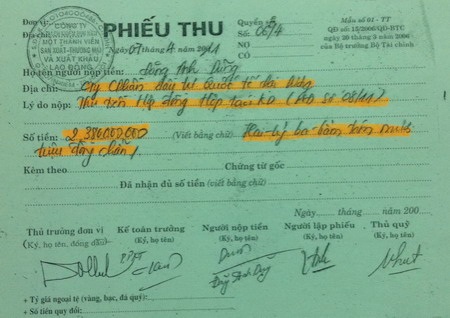 Đơn vị:
PHIẾU THU
Quyển số:
Số: 06/4
Mẫu số 01 - TT
QĐ số: 15/2006/QĐ-BTC
ngày 20 tháng 3 năm 2006
của Bộ trưởng Bộ Tài chính
CÔNG TY
MỘT THÀNH VIÊN
SẢN XUẤT-THƯƠNG MẠI
VÀ XUẤT KHẨU
LAO ĐỘNG
Ngày 07 tháng 4 năm 2011
NỢ
CÓ
Họ tên người nộp tiền: Đặng Anh Dũng
Địa chỉ: Cty CPhần đầu tư quốc tế
Lý do nộp: Thu tiền Hợp đồng Hợp tác KD (HĐ số 08/11)
Số tiền: 2,380.000.000 (Viết bằng chữ) Hai tỷ ba trăm tám mươi
triệu đồng chẵn
Kèm theo Chứng từ gốc
Đã nhận đủ số tiền (viết bằng chữ)
Ngày tháng năm 200
Thủ trưởng đơn vị
(Ký, họ tên, đóng dấu)
Kế toán trưởng
(Ký, họ tên)
Người nộp tiền
(Ký, họ tên)
Người lập phiếu
(Ký, họ tên)
Thủ quỹ
(Ký, họ tên)
+ Tỷ giá ngoại tệ (vàng, bạc, đá quý)
+ Số tiền quy đổi